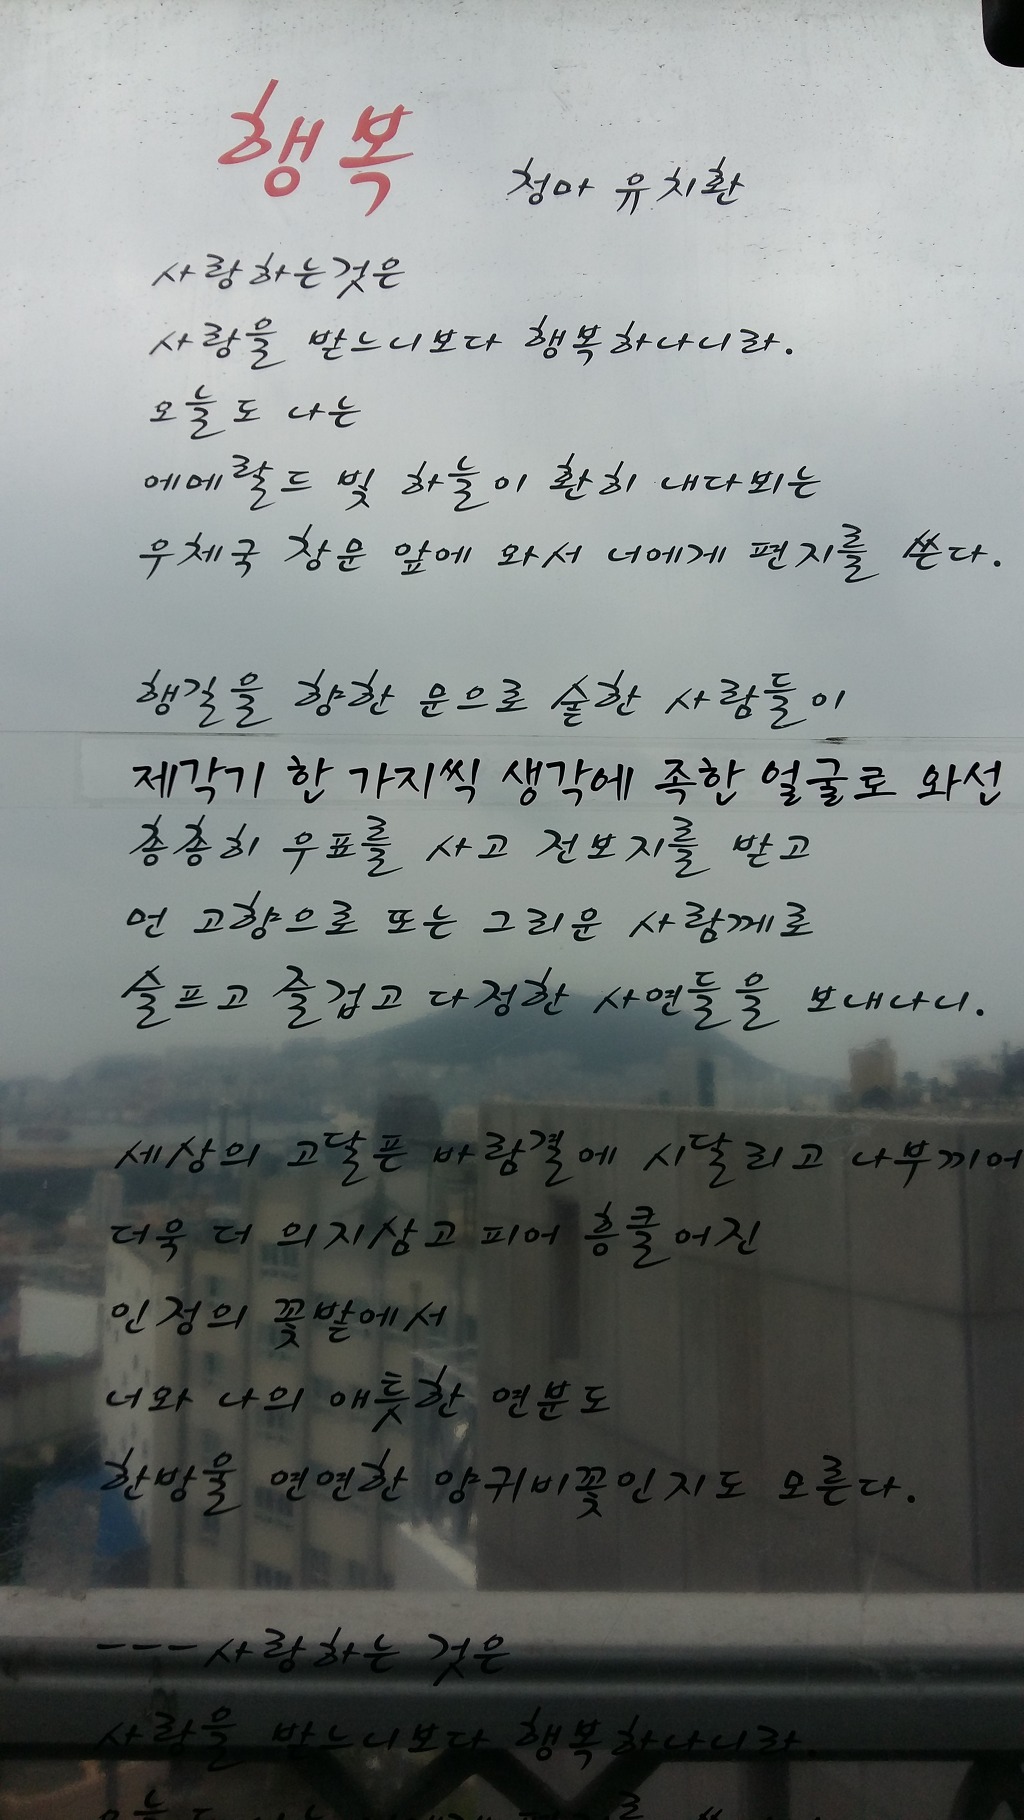 행복
청마 유치환
사랑하는것은
사랑을 받느니보다 행복하나니라.
오늘도 나는
에메랄드 빛 하늘이 환히 내다뵈는
우체국 창문 앞에 와서 너에게 편지를 쓴다.
행길을 향한 문으로 숱한 사람들이
제각기 한 가지씩 생각에 족한 얼굴로 와선
총총히 우표를 사고 전보지를 받고
먼 고향으로 또는 그리운 사람께로
슬프고 즐겁고 다정한 사연들을 보내나니.
세상의 고달픈 바람결에 시달리고 나부끼어
더욱 더 의지삼고 피어 흥클어진
인정의 꽃밭에서
너와 나의 애틋한 연분도
한방울 연연한 양귀비꽃인지도 모른다.
---사랑하는 것은
사랑을 받느니보다 행복하나니라.
오늘도